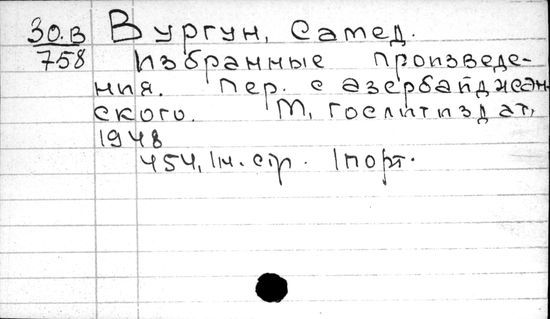 30.В Вургун, Самед.
758 Избранные произведе-
ния. Пер. с азербайджан-
ского. М, Гослитиздат,
1948
454, 1н. стр. 1 порт.